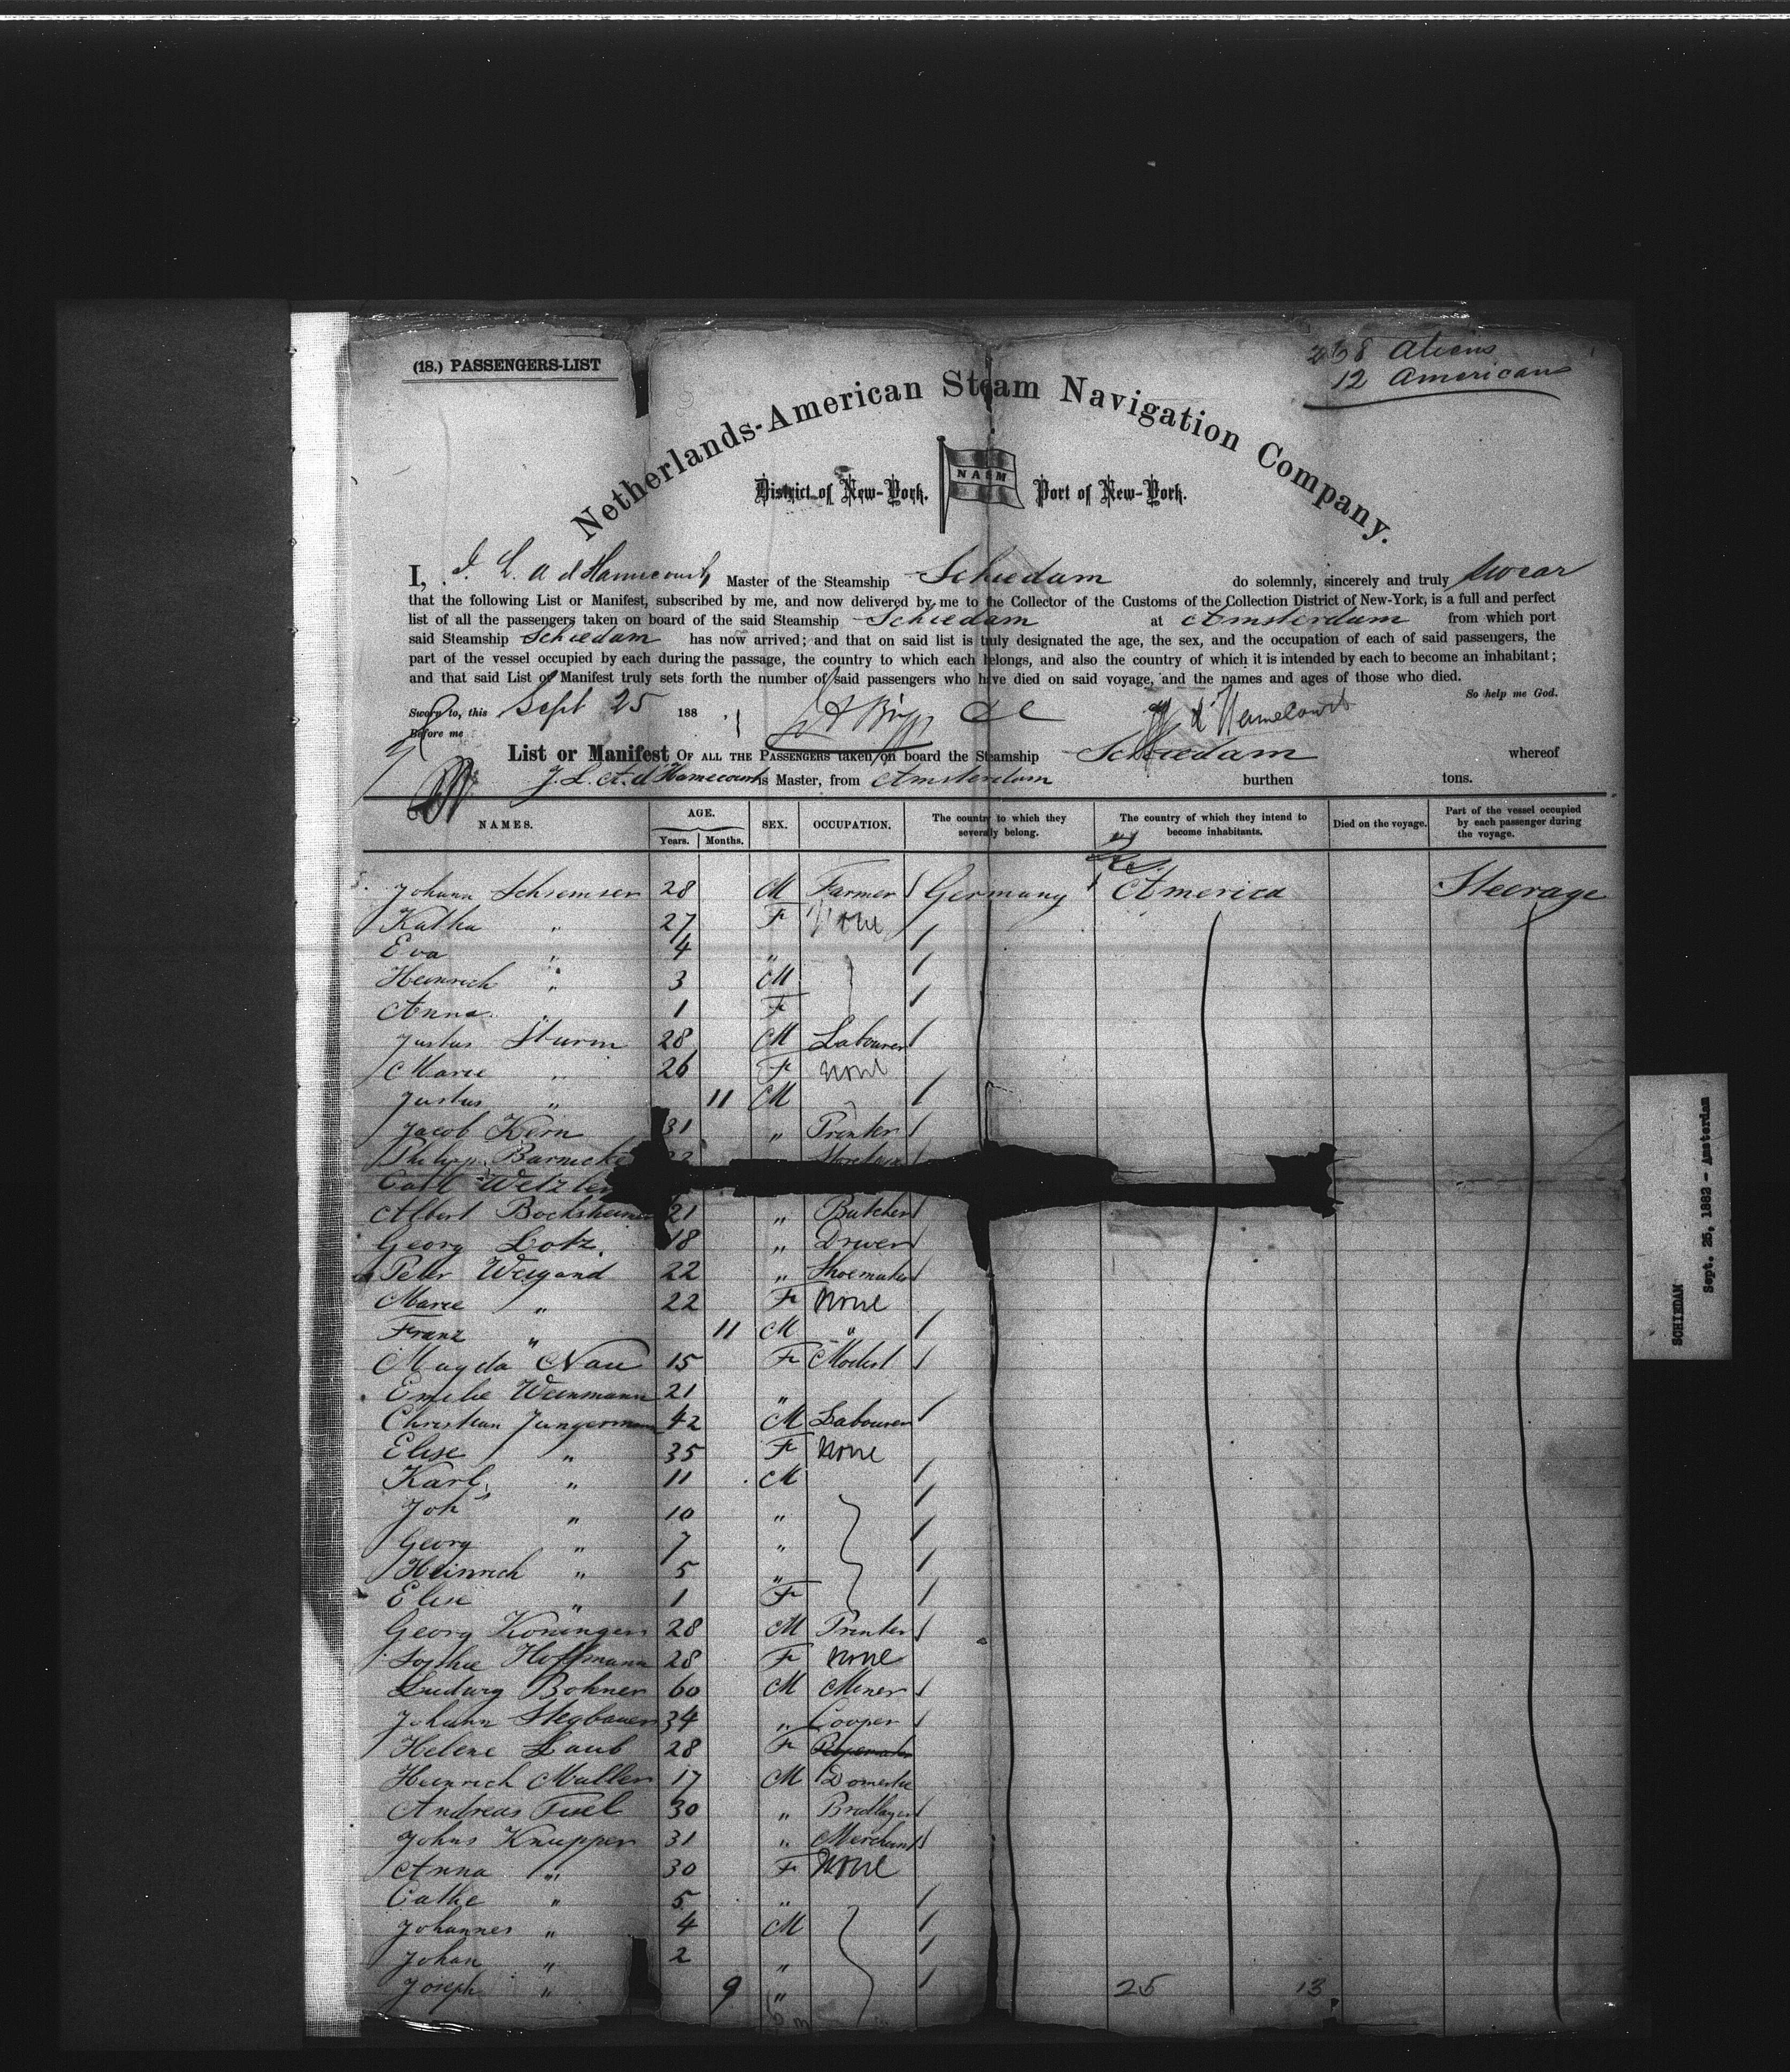 (18.) PASSENGERS-LIST
Aliens
12 American
Netherlands-American Steam Navigation Company.
District of New-York. NASM Port of New-York.
I, J. L. A d'Hamecourt, Master of the Steamship Schiedam do solemnly, sincerely and truly swear
that the following List or Manifest, subscribed by me, and now delivered by me to the Collector of the Customs of the Collection District of New-York, is a full and perfect
list of all the passengers taken on board of the said Steamship Schiedam at Amsterdam from which port
said Steamship Schiedam has now arrived; and that on said list is truly designated the age, the sex, and the occupation of each of said passengers, the
part of the vessel occupied by each during the passage, the country to which each belongs, and also the country of which it is intended by each to become an inhabitant;
and that said List or Manifest truly sets forth the number of said passengers who have died on said voyage, and the names and ages of those who died.
So help me God.
Sworn to, this Sept 25 188
Before me
d'Hamecourt
List or Manifest OF ALL THE PASSENGERS taken on board the Steamship Schiedam whereof
J. L. A. d'Hamecourt is Master, from Amsterdam burthen tons.
NAMES. AGE. Years. Months. SEX. OCCUPATION. The country to which they severally belong. The country of which they intend to become inhabitants. Died on the voyage. Part of the vessel occupied by each passenger during the voyage.
Johann Schremser 28 M Farmer Germany America Steerage
Katha " 27 F None
Eva " 4 "
Heinrich " 3 M
Anna " 1 F
Justus Sturm 28 M Labourer
Marie " 26 F none
Justus " 11 M
Jacob Kern 31 " Printer
Philipp Barnicke
Carl Wetzler
Albert Bocksheimer 21 " Butcher
Georg Lotz 18 " Driver
Peter Weigand 22 " Shoemaker
Marie " 22 F None
Franz " 11 M "
Magda Nau 15 F Modist
Emilie Weinmann 21 "
Christian Jungermann 42 M Labourer
Elise " 35 F None
Karl " 11 M
Johs " 10 "
Georg " 7 "
Heinrich " 5 "
Elise " 1 F
Georg Koninger 28 M Printer
Sophie Hoffmann 28 F none
Ludwig Bohner 60 M Miner
Johann Stegbauer 34 " Cooper
Helene Laub 28 F
Heinrich Muller 17 M Domestic
Andreas Fisel 30 " Bricklayer
Johns Knupper 31 " Merchant
Anna " 30 F None
Cathe " 5 "
Johannes " 4 M
Johan " 2 "
Joseph " 9 "
25 13
SCHIEDAM
Sept. 25, 1882 - Amsterdam